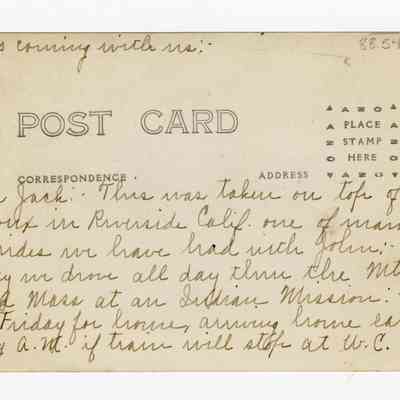 s coming with us:-
88.54
POST CARD
AZO
PLACE
STAMP
HERE
AZO
CORRESPONDENCE
ADDRESS
Jack:- This was taken on top of
oux in Riverside Calif. one of man
rides we have had with John:-
y we drove all day thru the Mt
d Mass at an Indian Mission:-
Friday for home, arriving home ea
y A.M. if train will stop at W.C.